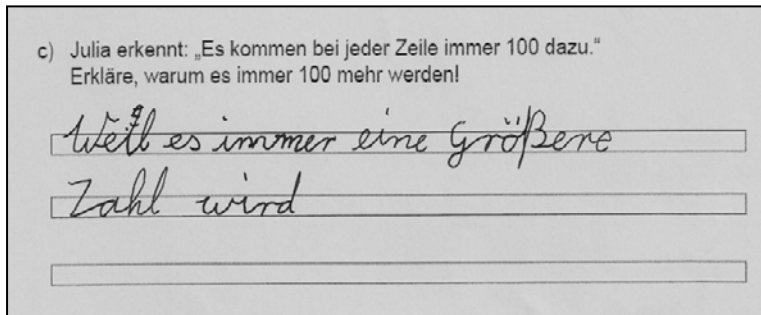 c) Julia erkennt: „Es kommen bei jeder Zeile immer 100 dazu.“
Erkläre, warum es immer 100 mehr werden!
Weil es immer eine Größere
Zahl wird